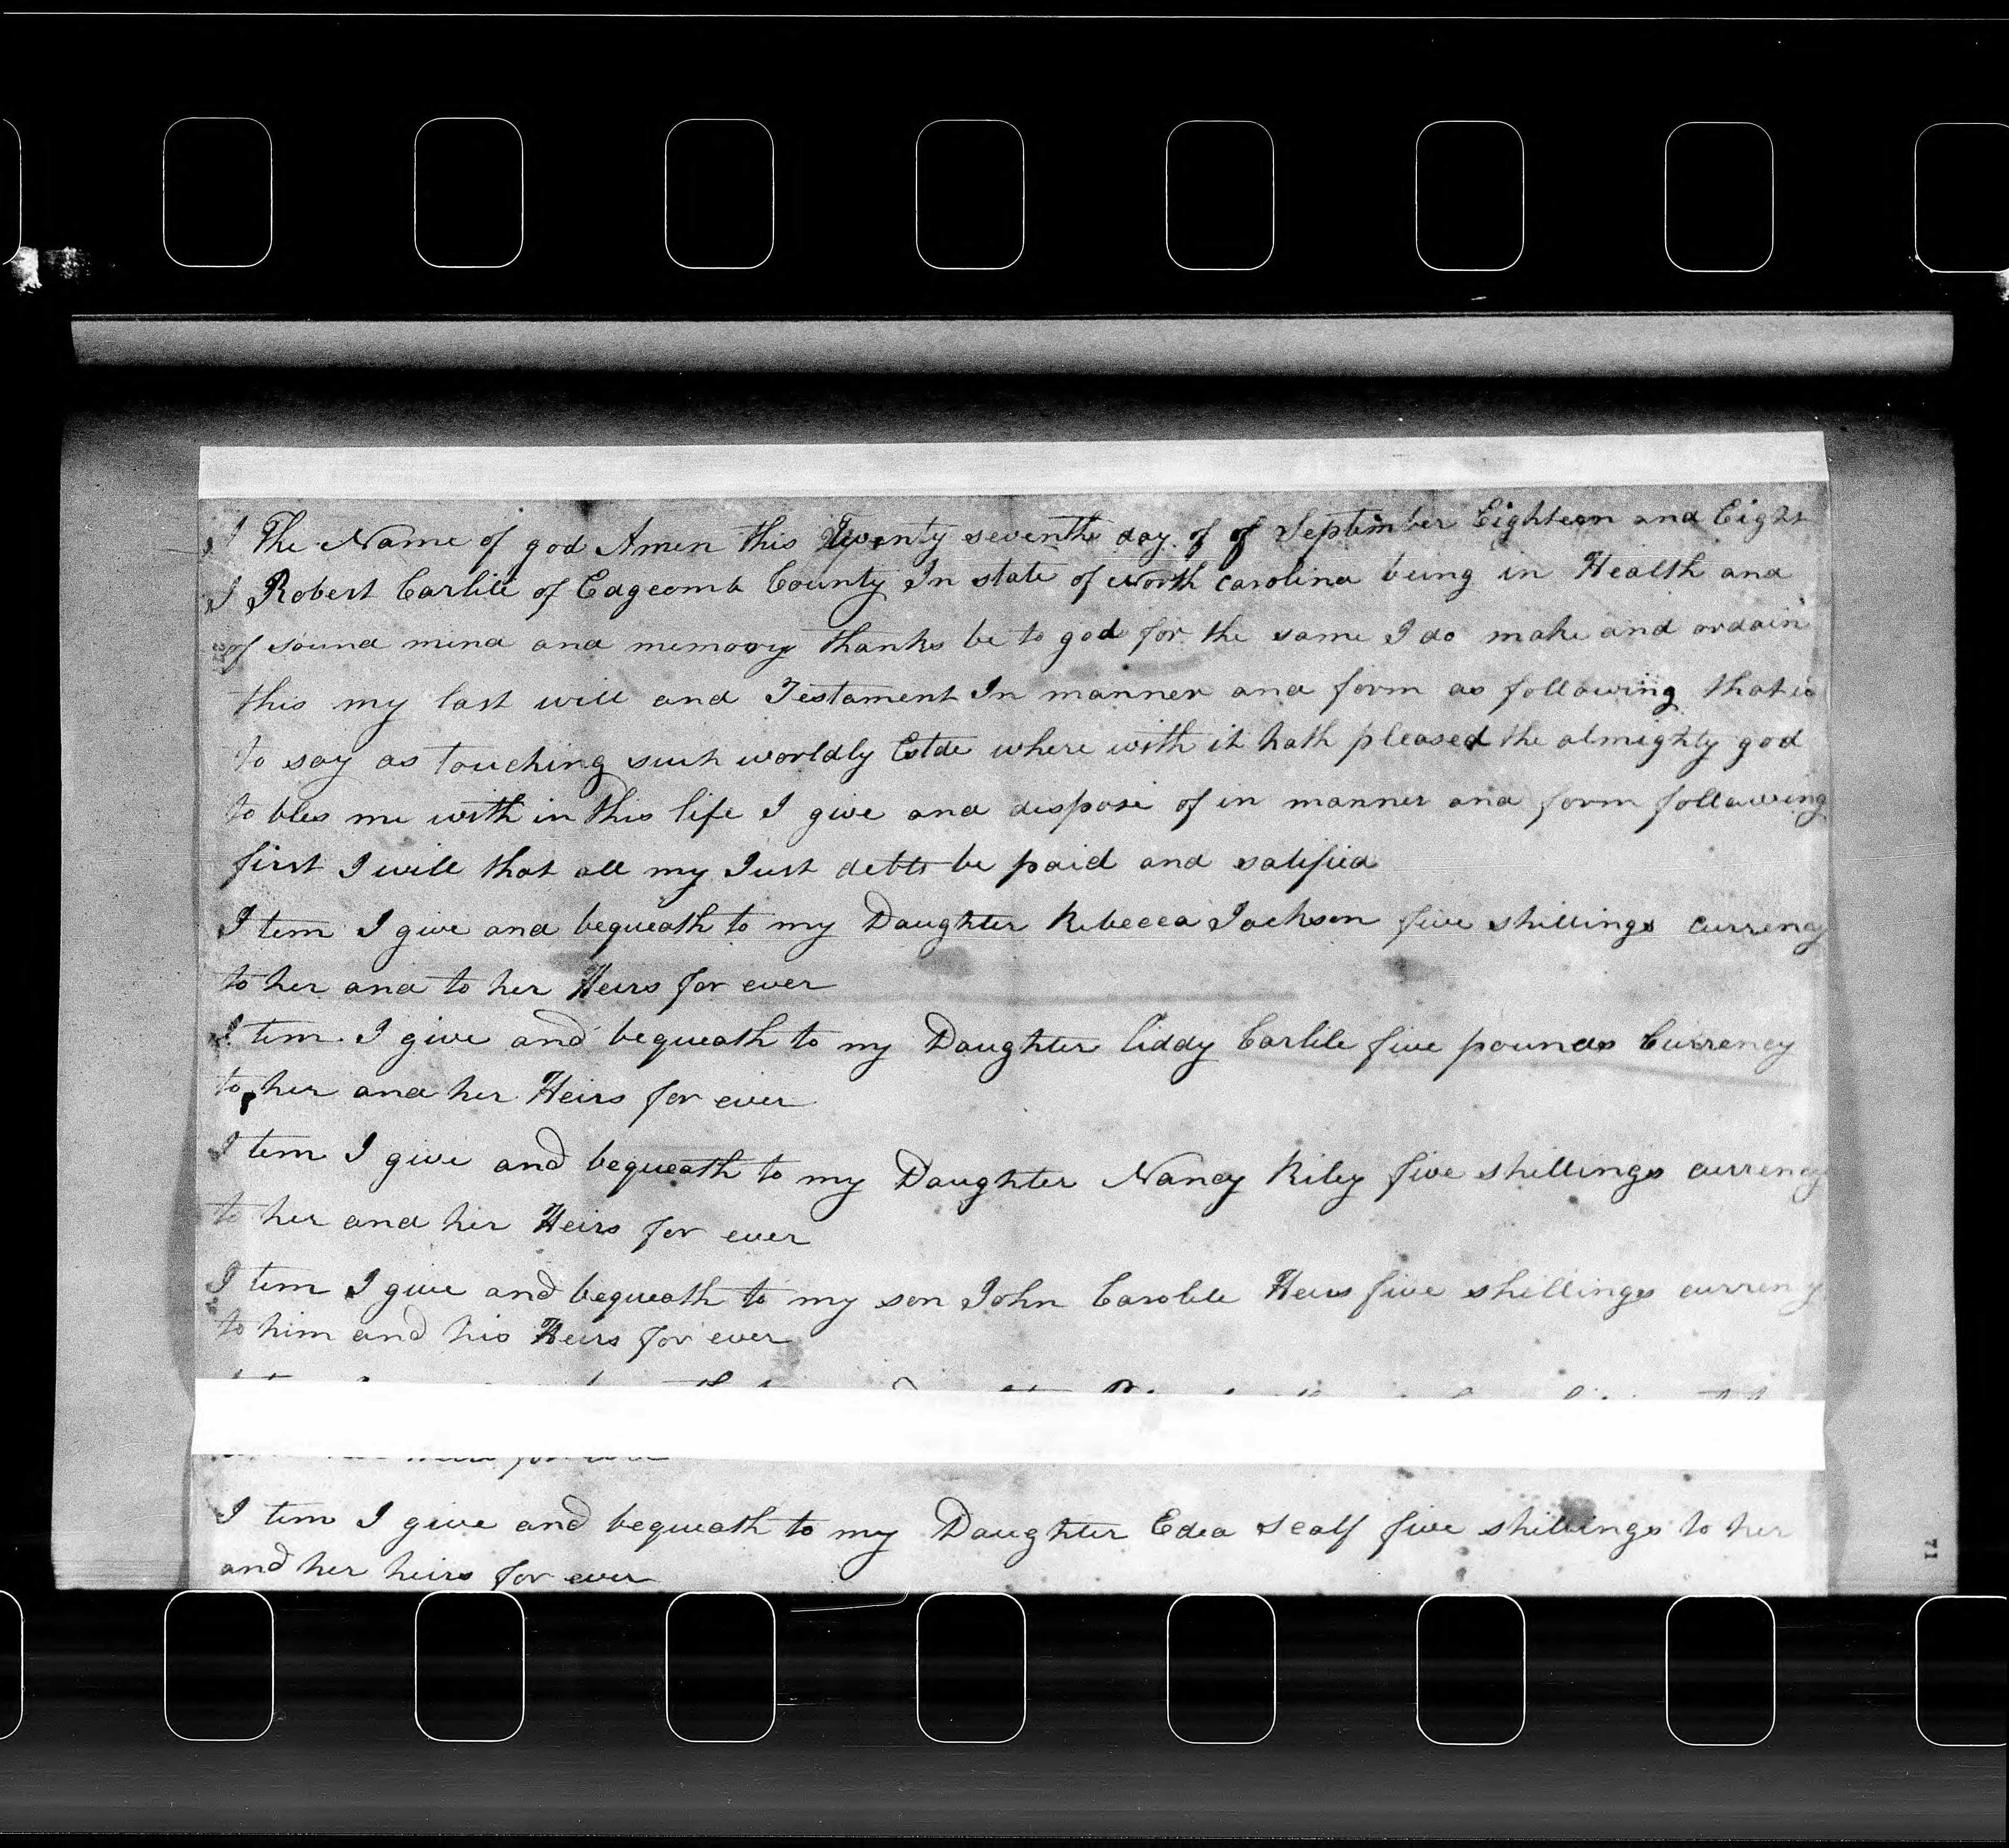 I The Name of god Amen this Twenty seventh day of of September Eighteen and Eight
I Robert Carlile of Edgecomb County In state of North carolina being in Health and
of sound mind and memory thanks be to god for the same I do make and ordain
this my last will and Testament In manner and form as following that is
to say as touching such worldly Estde where with it hath pleased the almighty god
to bles me with in this life I give and dispose of in manner and form following
first I will that all my Just debts be paid and satified
I tem I give and bequeath to my Daughter Rebecca Jackson five shillings currency
to her and to her Heirs for ever
I tem I give and bequeath to my Daughter liddy Carlile five pounds Currency
to her and her Heirs for ever
I tem I give and bequeath to my Daughter Nancy Riley five shillings currency
to her and her Heirs for ever
I tem I give and bequeath to my son John Carlile Heirs five shillings curreny
to him and his Heirs for ever
I tem I give and bequeath to my Daughter Edea Sealf five shillings to her
and her heirs for ever
71